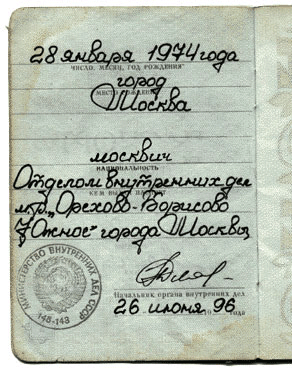 28 января 1974 года
ЧИСЛО, МЕСЯЦ, ГОД РОЖДЕНИЯ
город
МЕСТО РОЖДЕНИЯ
Москва
москвич
НАЦИОНАЛЬНОСТЬ
Отделом внутренних дел
КЕМ ВЫДАН
м-р „Орехово-Борисово
Южное" города Москвы
МИНИСТЕРСТВО ВНУТРЕННИХ ДЕЛ СССР
148-143
Начальник органа внутренних дел
26 июня 96 года